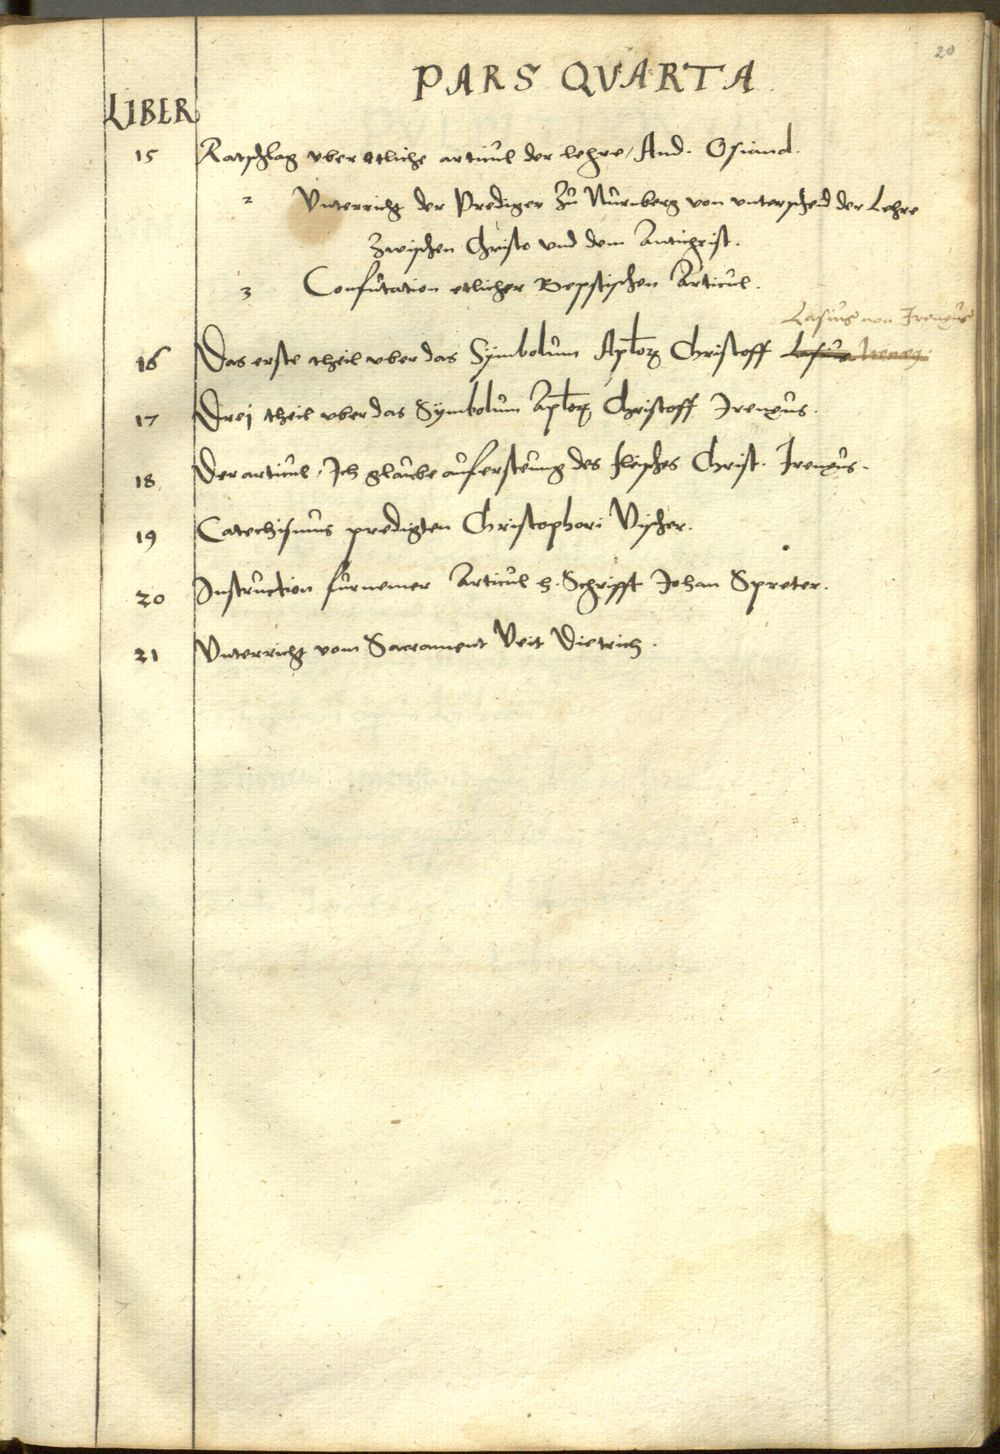 20
PARS QVARTA
LIBER
15 Ratschlag vber etliche articul der lehre, And. Osiand.
2 Vnterricht der Prediger zu Nürnberg von vnterscheid der Lehre
zwischen Christo vnd dem Antichrist.
3 Confutation etlicher Bepstischen Articul.
Lasius non Irenæus
16 Das erste theil vber das Symbolum Aplorꝝ Christoff Lasius
17 Drei theil vber das Symbolum Aplorꝝ Christoff Irenæus.
18 Der articul, Ich glaube aufersteung des fleisches Christ. Irenæus.
19 Catechismus predigten Christophori Vischer.
20 Instruction furnemer Articul h. Schrifft Johan Spreter.
21 Vnterricht vom Sacrament Veit Dietrich.